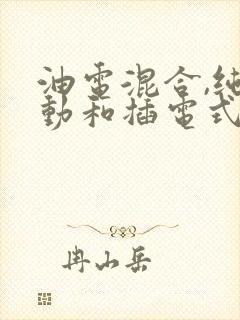 油電混合,純
動和插電式
冉山岳